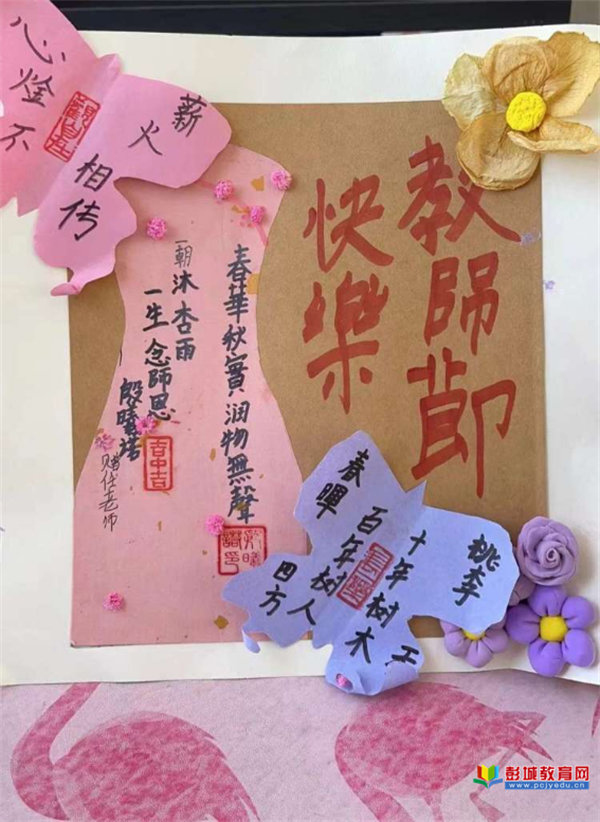 教師節
快樂
薪火
相传
心燈不
春華秋實 润物無聲
一朝沐杏雨
一生念師恩
赠任老师
桃李
十年樹木
百年樹人
春暉
四方
彭城教育网
www.pcjyedu.cn